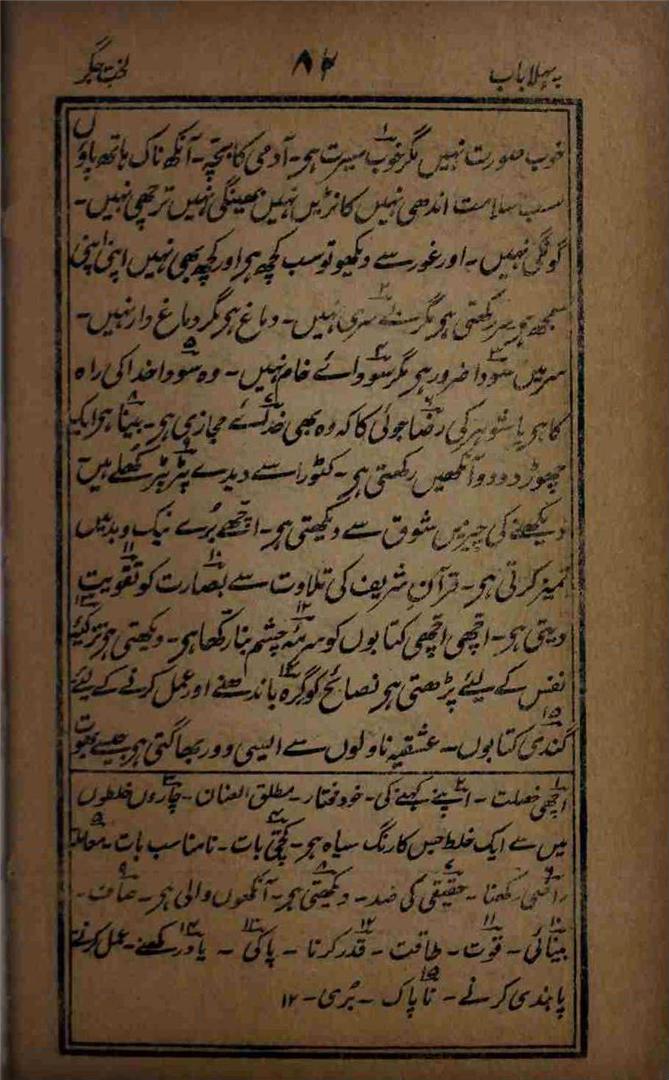 پہلا باب ۸۲ لخت جگر
خوب صورت نہیں مگر خوب سیرت ہی۔ آدمی کا بچہ۔ آنکھ ناک ہاتھ پاؤں
سب سلامت اندھی نہیں کانڑیں نہیں بھینگی نہیں ترچھی نہیں۔
گونگی نہیں۔ اور غور سے دیکھیو تو سب کچھ ہی اور کچھ بھی نہیں اپنی اپنی
سمجھ ہی سر رکھتی ہی مگر سری نہیں۔ دماغ ہی مگر دماغ دار نہیں۔
سر میں سودا ضرور ہی مگر سودائے خام نہیں۔ وہ سودا خدا کی راہ
کا ہی یا شوہر کی رضا جوئی کا کہ وہ بھی خدائے مجازی ہی۔ بینا ہی ایک
چھوڑ دو دو آنکھیں رکھتی ہی۔ کٹورا سے دیدے پٹر پٹر کھلے ہیں
دیکھنے کی چیزیں شوق سے دیکھتی ہی۔ اچھے بُرے نیک و بد میں
تمیز کرتی ہی۔ قرآن شریف کی تلاوت سے بصارت کو تقویت
دیتی ہی۔ اچھی اچھی کتابوں کو سرمۂ چشم بنا رکھا ہی۔ دیکھتی ہی تزکیۂ
نفس کے لیئے پڑھتی ہی نصائح کو گرہ باندھنے اور عمل کرنے کے لیئے
گندی کتابوں۔ عشقیہ ناولوں سے ایسی دور بھاگتی ہی جیسے بھوت
۱ اچھی خصلت۔ ۲ اپنے کہنے کی۔ خود مختار۔ مطلق العنان۔ ۳ چاروں خلطوں
میں سے ایک خلط جس کا رنگ سیاہ ہی۔ ۴ کچی بات۔ نامناسب بات۔ ۵ معاملہ
۶ راضی رکھنا۔ ۷ حقیقی کی ضد۔ ۸ دیکھتی ہی۔ آنکھوں والی ہی۔ ۹ صاف۔
۱۰ بینائی۔ ۱۱ قوت۔ طاقت۔ ۱۲ قدر کرنا۔ ۱۳ پاکی۔ ۱۴ یاد رکھنے۔ عمل کرنے
پابندی کرنے۔ ۱۵ ناپاک۔ بُری۔ ۱۲